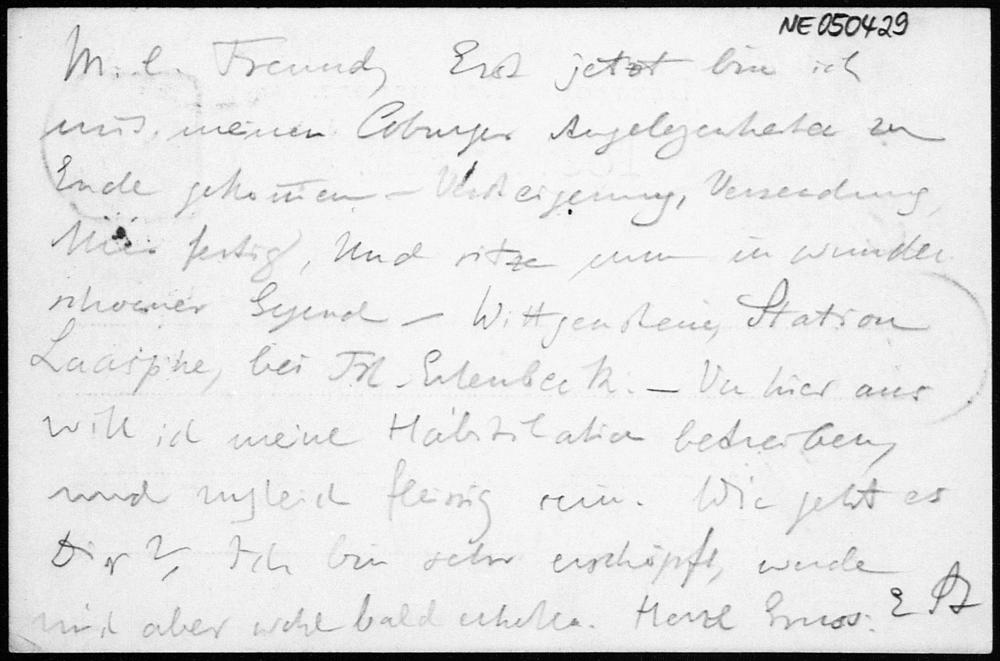 NE050429
M. l. Freund, Erst jetzt bin ich
mit meinen Coburger Angelegenheiten zu
Ende gekommen – Versteigerung, Versendung,
Alles fertig, Und sitze nun in wunder
schoener Gegend – Wittgenstein, Station
Laasphe, bei Frl. Erlenbeck. – Von hier aus
will ich meine Habilitation betreiben,
und zugleich fleissig sein. Wie geht es
Dir?, Ich bin sehr erschöpft, werde
mich aber wohl bald erholen. Herzl Gruss.